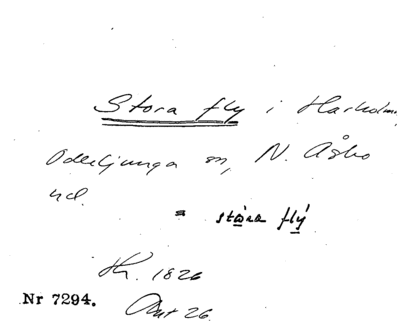 Stora fly i Harholma,
Odeljunga sn, N. Åsbo
hd.
= stora flý
Hk. 1826
Nr 7294.
26